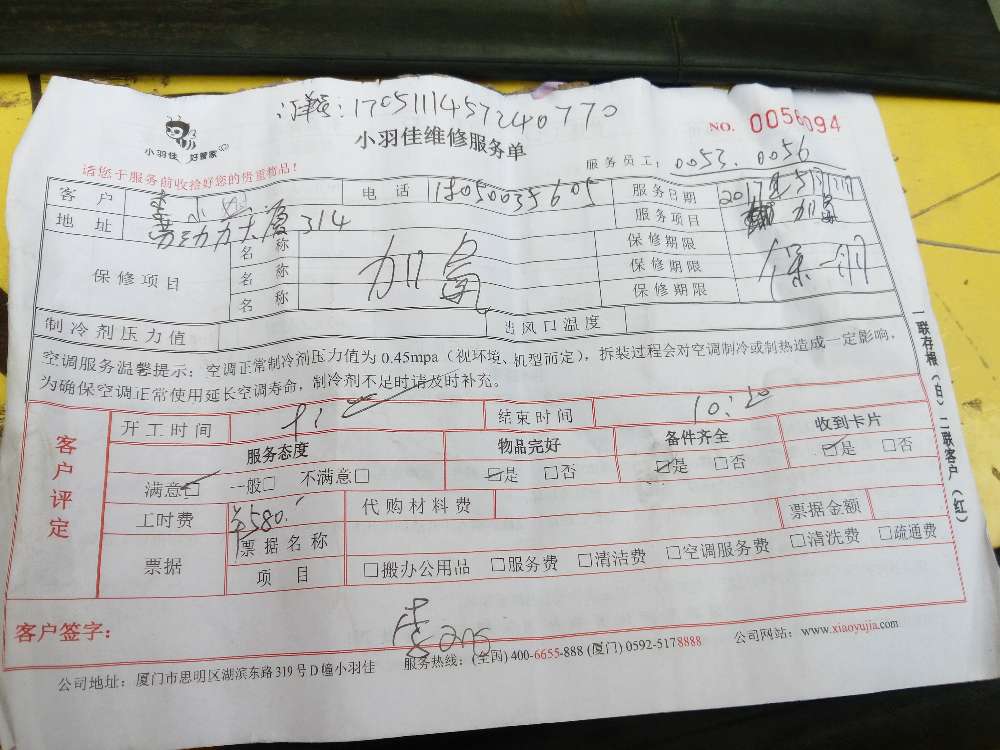 1705111457240770
小羽佳 好管家
小羽佳维修服务单
NO. 0056094
请您于服务前收拾好您的贵重物品!
服务员工: 0053. 0056
客户 李小 电话 18050035605 服务日期 2017年5月
地址 劳动力大厦314 服务项目 加氟
保修项目 名称 加氟 保修期限 保一月
名称 保修期限
名称 保修期限
制冷剂压力值 出风口温度
空调服务温馨提示: 空调正常制冷剂压力值为 0.45mpa (视环境、机型而定), 拆装过程会对空调制冷或制热造成一定影响,
为确保空调正常使用延长空调寿命, 制冷剂不足时请及时补充。
一联存根(白)二联客户(红)
客户评定
开工时间 结束时间 10:20
服务态度 物品完好 备件齐全 收到卡片
满意☑ 一般□ 不满意□ ☑是 □否 ☑是 □否 ☑是 □否
工时费 ¥580. 代购材料费 票据金额
票据 票据名称
项目 □搬办公用品 □服务费 □清洁费 □空调服务费 □清洗费 □疏通费
客户签字: 李
公司地址: 厦门市思明区湖滨东路319号D幢小羽佳 服务热线: (全国) 400-6655-888 (厦门) 0592-5178888 公司网站: www.xiaoyujia.com